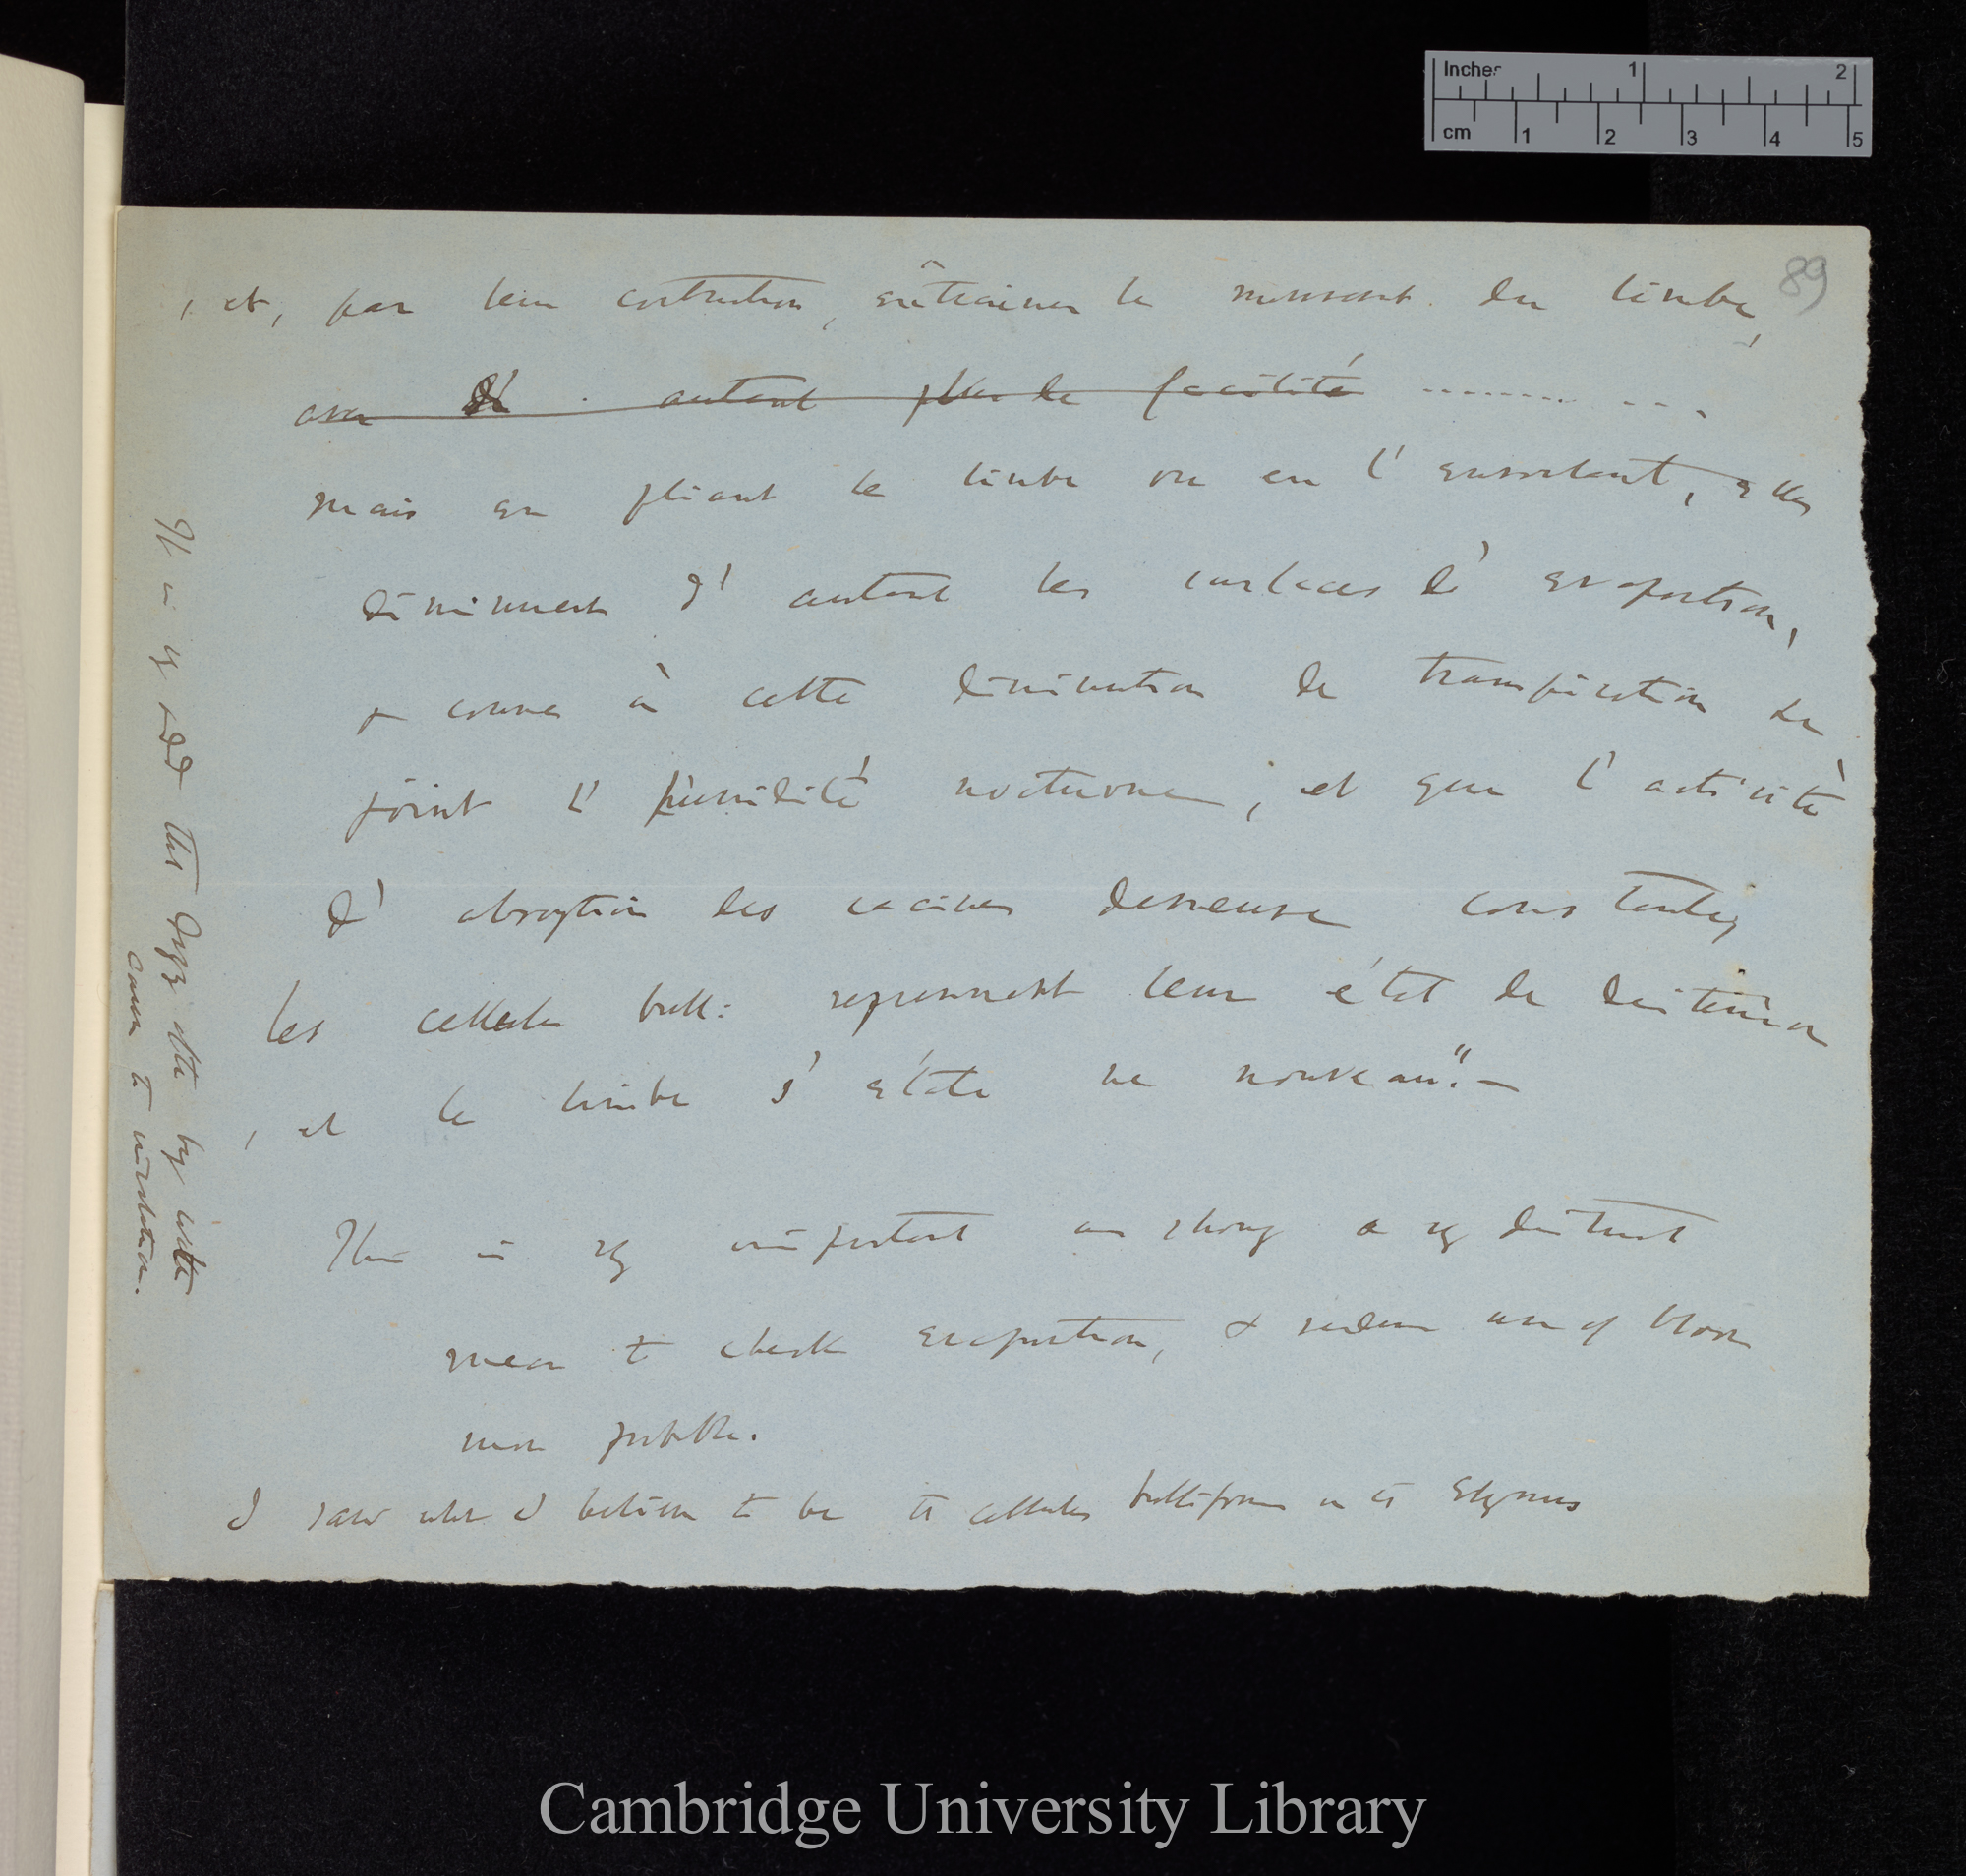 Inches 1 2
cm 1 2 3 4 5
89
, et, par leur contraction, entrâiner le mouvement du limbe,
avec d' autant plus de facilité ...........
mais en pliant le limbe ou en l' enroulant, elles
diminuent d' autant les surfaces d' evaportion,
& comme à cette diminution de transpiration se
joint l' humidité nocturne, et que l' activité
d' absorption des racines demeure constante,
les cellules bull: reprennent leur état de distension
, et le limbe s' étale de nouveau". —
This is vy important as shows a vy distinct
mean to check evaportion, & renders use of bloom
more probable.
I saw what I believe to be the cellules bulliformes in the Elymus
It is vy odd this
by water
cause to